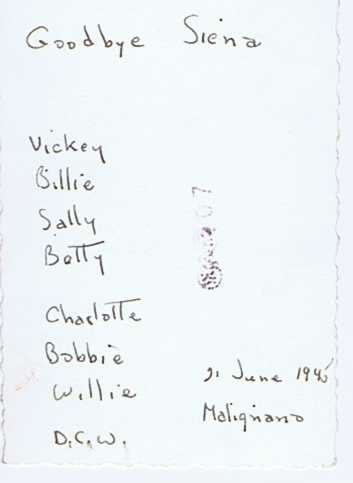 Goodbye Siena
Vickey
Billie
Sally
Betty
Charlotte
Bobbie
Willie
D.C.W.
21 June 1945
Malignano